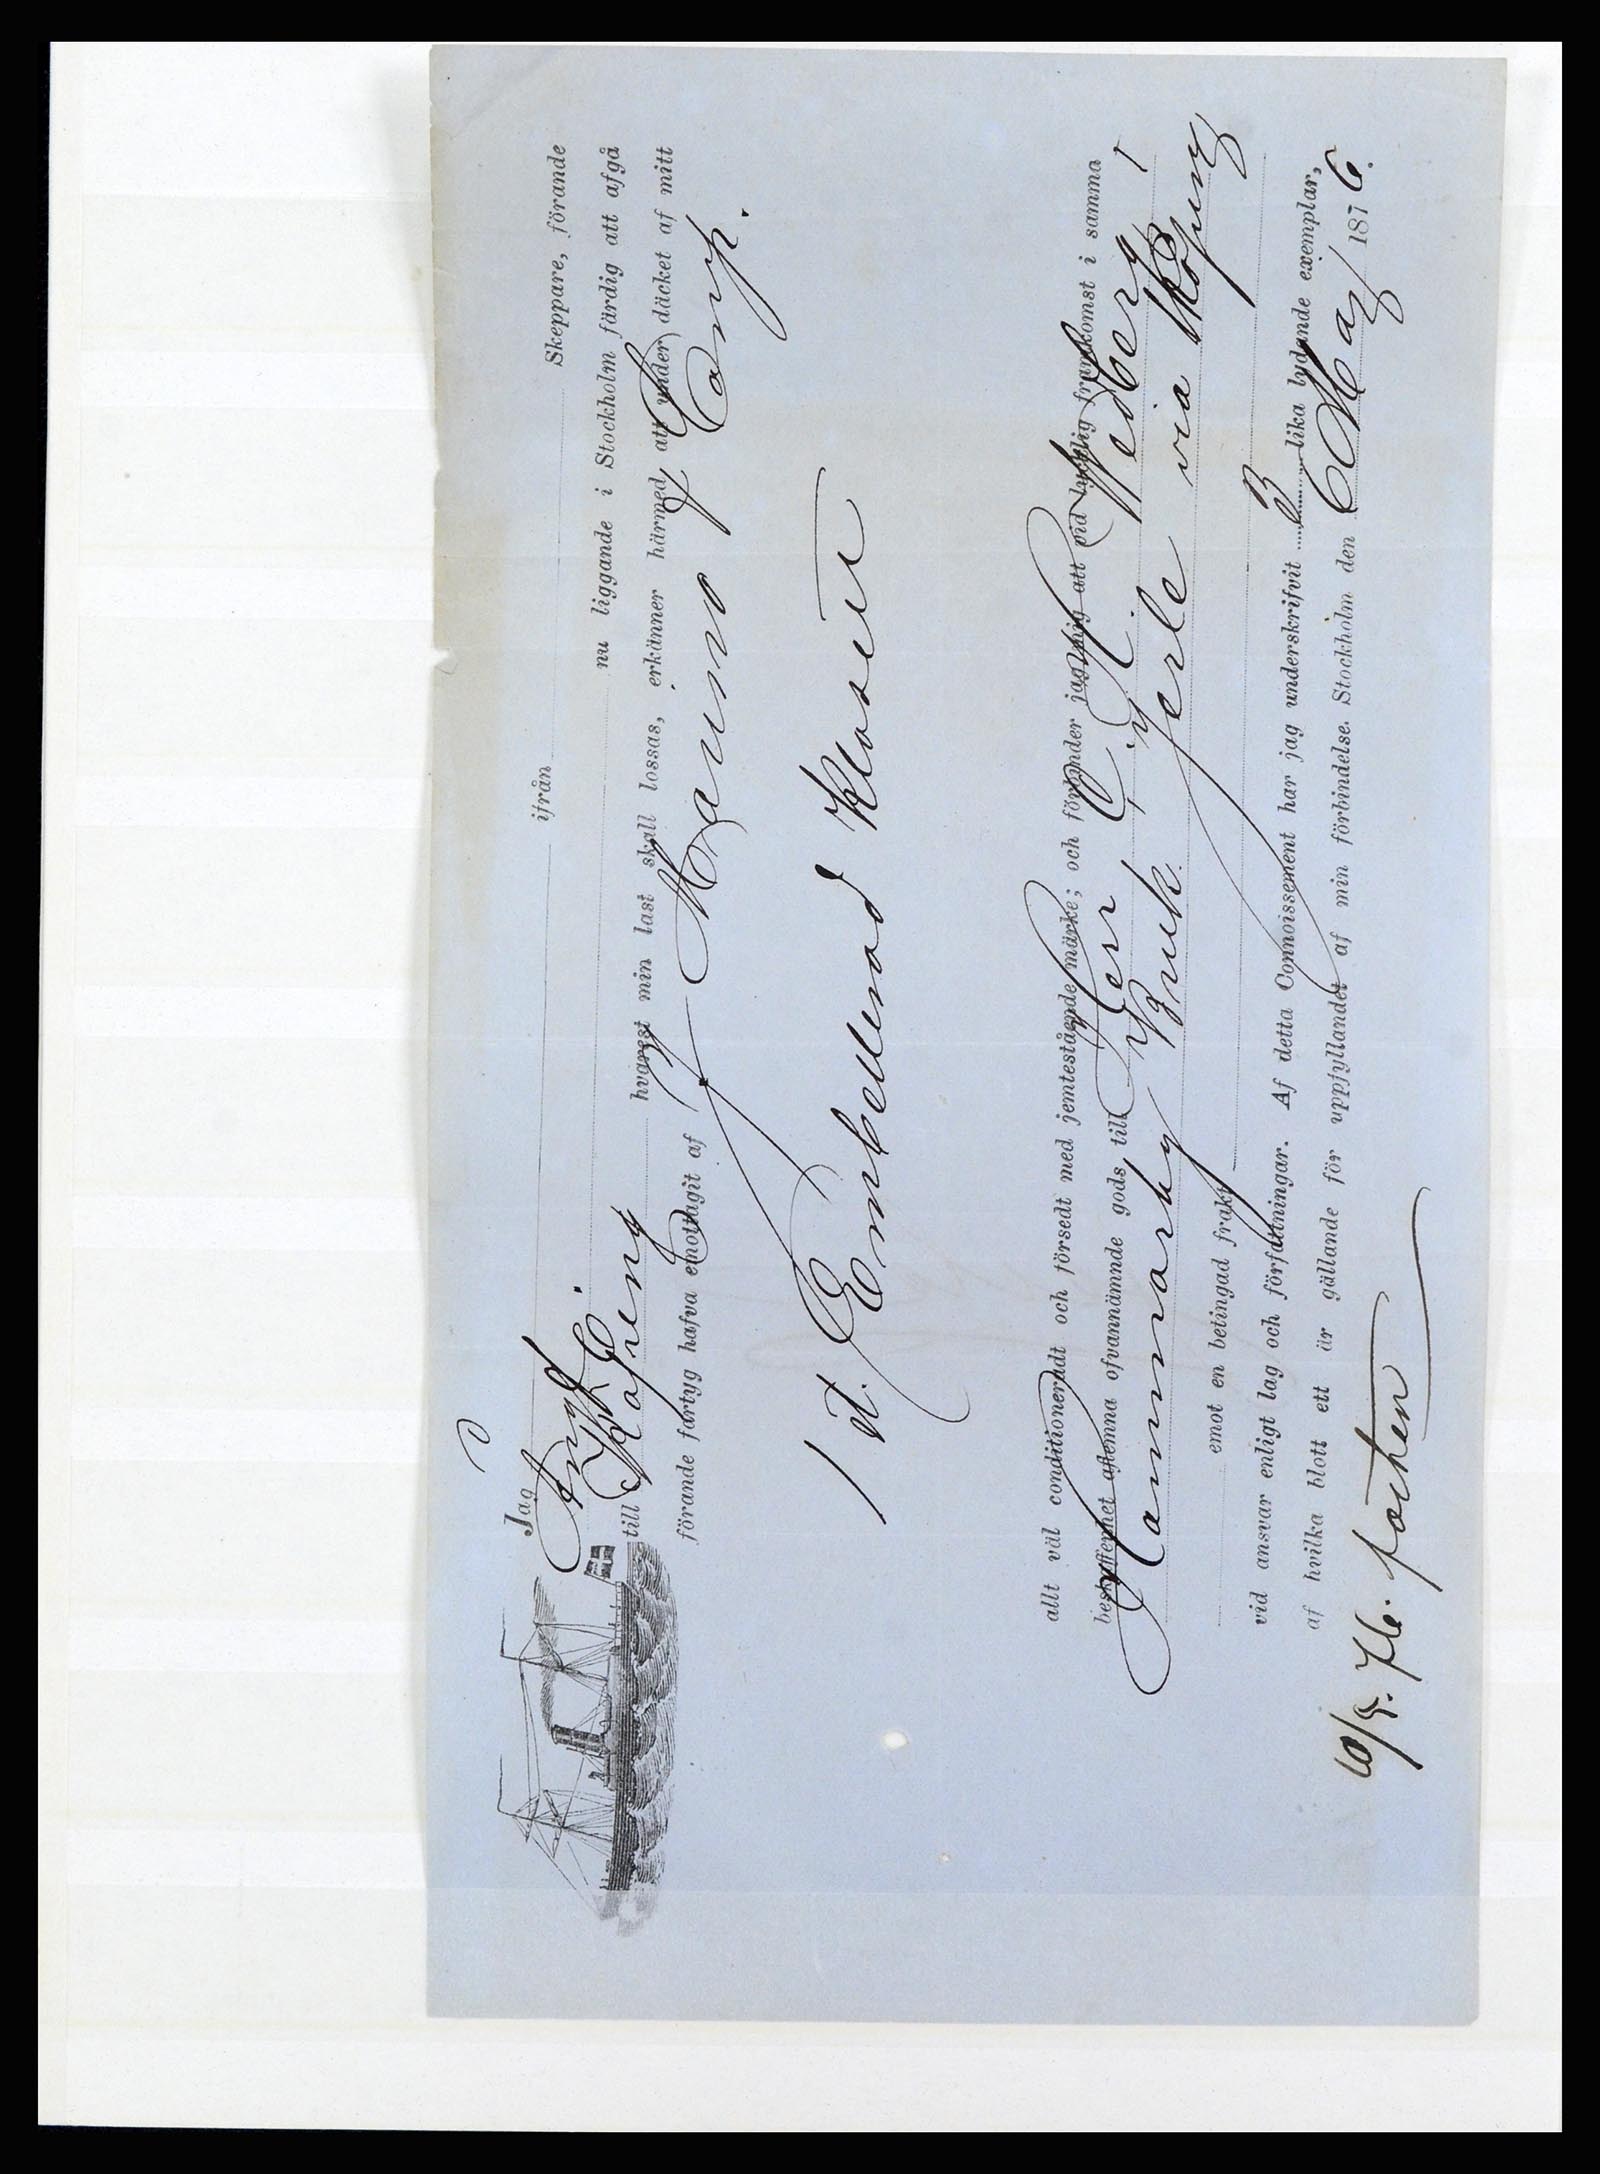 Jag ifrån Skeppare, förande
Ångf.
till Köping nu liggande i Stockholm färdig att afgå
hvarest min last skall lossas, erkänner härmed att under däcket af mitt
förande fartyg hafva emottagit af & Comp.
1 st. Emballerad Klosett
allt väl conditioneradt och försedt med jemtestående märke; och förbinder jag mig att vid lycklig framkomst i samma
beskaffenhet aflemna ofvannämnde gods till Herr C. A. Wedberg
Hammarby Bruk Jerle via Köping
emot en betingad frakt
vid ansvar enligt lag och författningar. Af detta Connoissement har jag underskrifvit 3 lika lydande exemplar,
af hvilka blott ett är gällande för uppfyllandet af min förbindelse. Stockholm den Maj 1876.